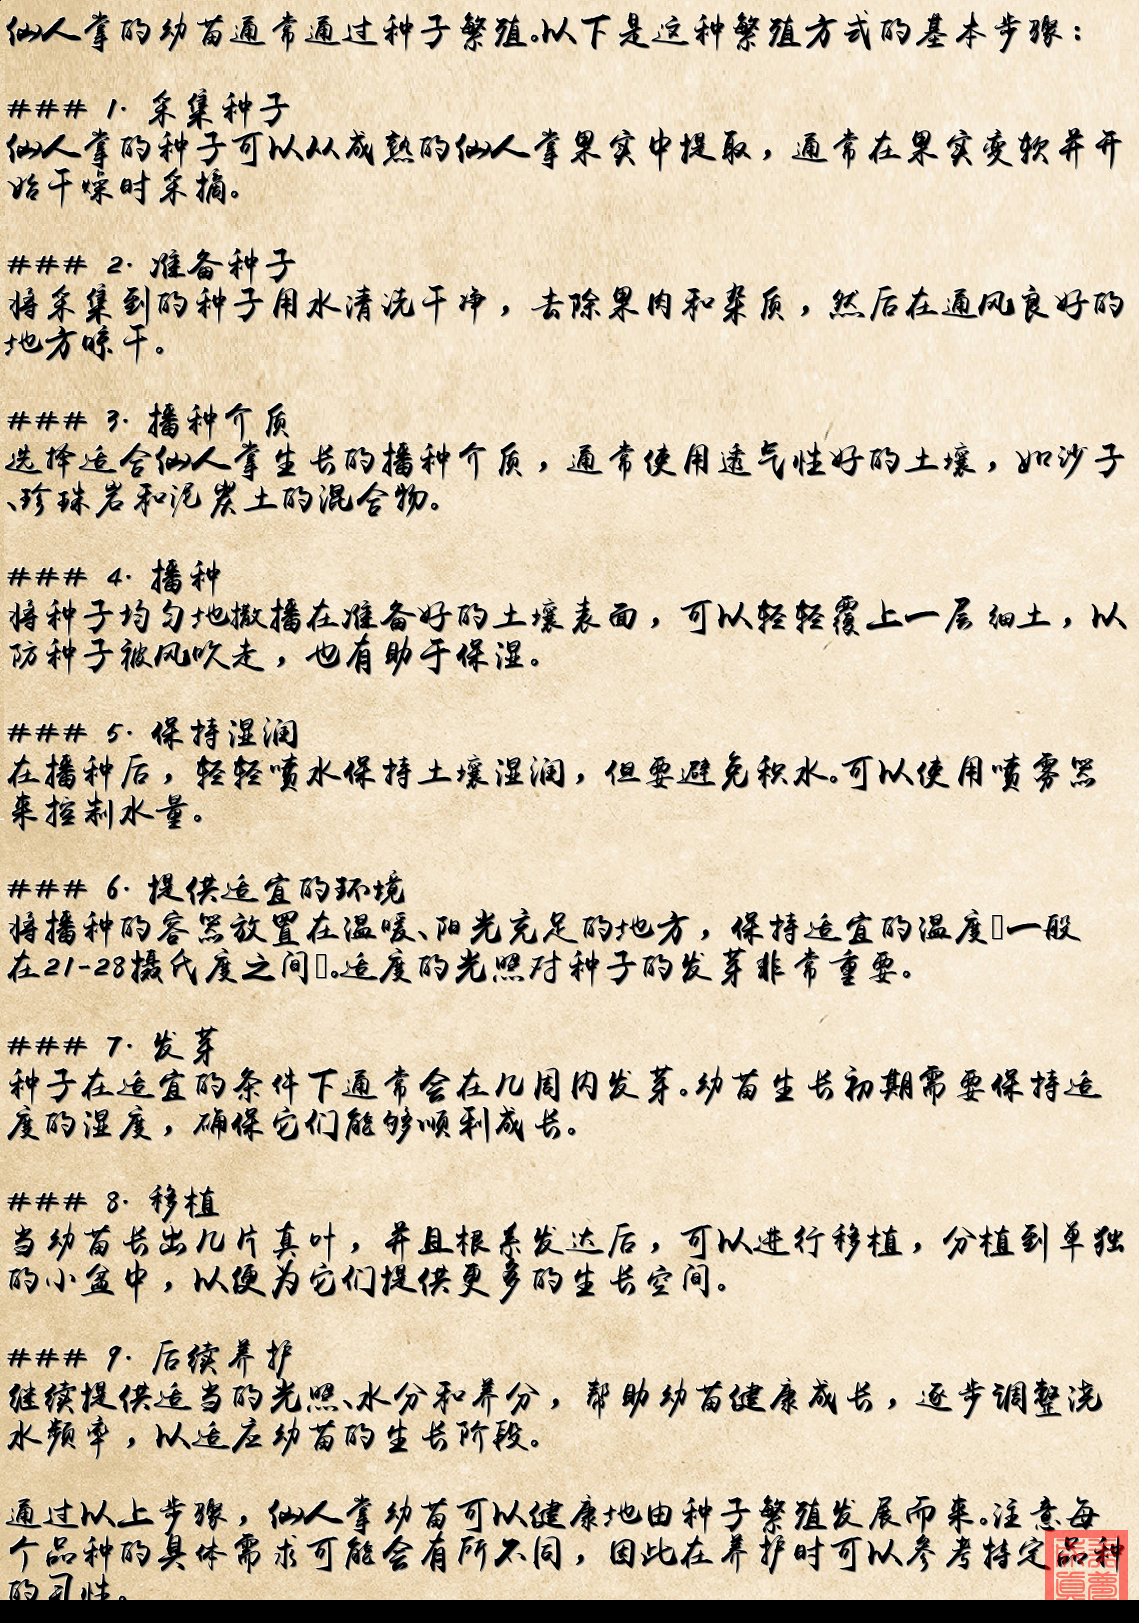 仙人掌的幼苗通常通过种子繁殖。以下是这种繁殖方式的基本步骤：
### 1. 采集种子
仙人掌的种子可以从成熟的仙人掌果实中提取，通常在果实变软并开
始干燥时采摘。
### 2. 准备种子
将采集到的种子用水清洗干净，去除果肉和杂质，然后在通风良好的
地方晾干。
### 3. 播种介质
选择适合仙人掌生长的播种介质，通常使用透气性好的土壤，如沙子
、珍珠岩和泥炭土的混合物。
### 4. 播种
将种子均匀地撒播在准备好的土壤表面，可以轻轻覆上一层细土，以
防种子被风吹走，也有助于保湿。
### 5. 保持湿润
在播种后，轻轻喷水保持土壤湿润，但要避免积水。可以使用喷雾器
来控制水量。
### 6. 提供适宜的环境
将播种的容器放置在温暖、阳光充足的地方，保持适宜的温度一般
在21-28摄氏度之间。适度的光照对种子的发芽非常重要。
### 7. 发芽
种子在适宜的条件下通常会在几周内发芽。幼苗生长初期需要保持适
度的湿度，确保它们能够顺利成长。
### 8. 移植
当幼苗长出几片真叶，并且根系发达后，可以进行移植，分植到单独
的小盆中，以便为它们提供更多的生长空间。
### 9. 后续养护
继续提供适当的光照、水分和养分，帮助幼苗健康成长，逐步调整浇
水频率，以适应幼苗的生长阶段。
通过以上步骤，仙人掌幼苗可以健康地由种子繁殖发展而来。注意每
个品种的具体需求可能会有所不同，因此在养护时可以参考特定品种
的习性。